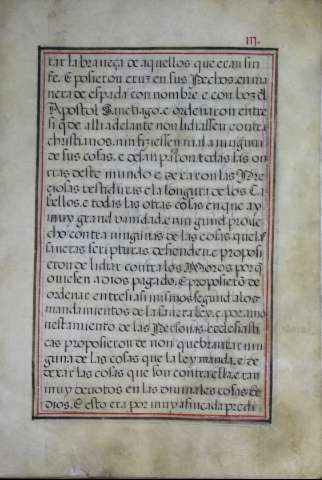 III.
tar la braueça de aquellos que eran sin
fe. E posieron cruz en sus Pechos, en ma
nera de espada con nombre e con boz del
Apostol Santiago. e ordenaron entre
si que de alli adelante non lidiassen contra
christianos. nin fiziessen mal a ninguno
de sus cosas. e dexan por toda las on
rras deste mundo e dexar con las Pre
ciosas vestiduras e la longura de los Ca
bellos. e todas las otras cosas en que ay
muy grand vanidad. e ningund proue
cho contra ningunas de las cosas que las
sanctas scripturas defienden. e proposie
ron de lidiar contra los Moros por que
ouiessen a Dios pagado. E proposieron de
ordenar entre si a si mismos segund a los
mandamientos de la sancta ley. e por amo
nestamiento de las Personas. ecclesiasti
cas proposieron de non quebrantar nin
guna de las cosas que la ley manda. e de
dexar las cosas que son contra ella. e eran
muy deuotos en las diuinales cosas de
Dios. E esto era por muy afincada predi